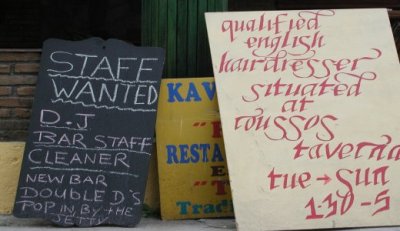 STAFF
WANTED
D.J
BAR STAFF
CLEANER
NEW BAR
DOUBLE D'S
POP IN BY THE
JETTY
KAV
RESTA
Tradi
qualified
english
hairdresser
situated
at
toussos
taverna
tue → sun
1.30-5